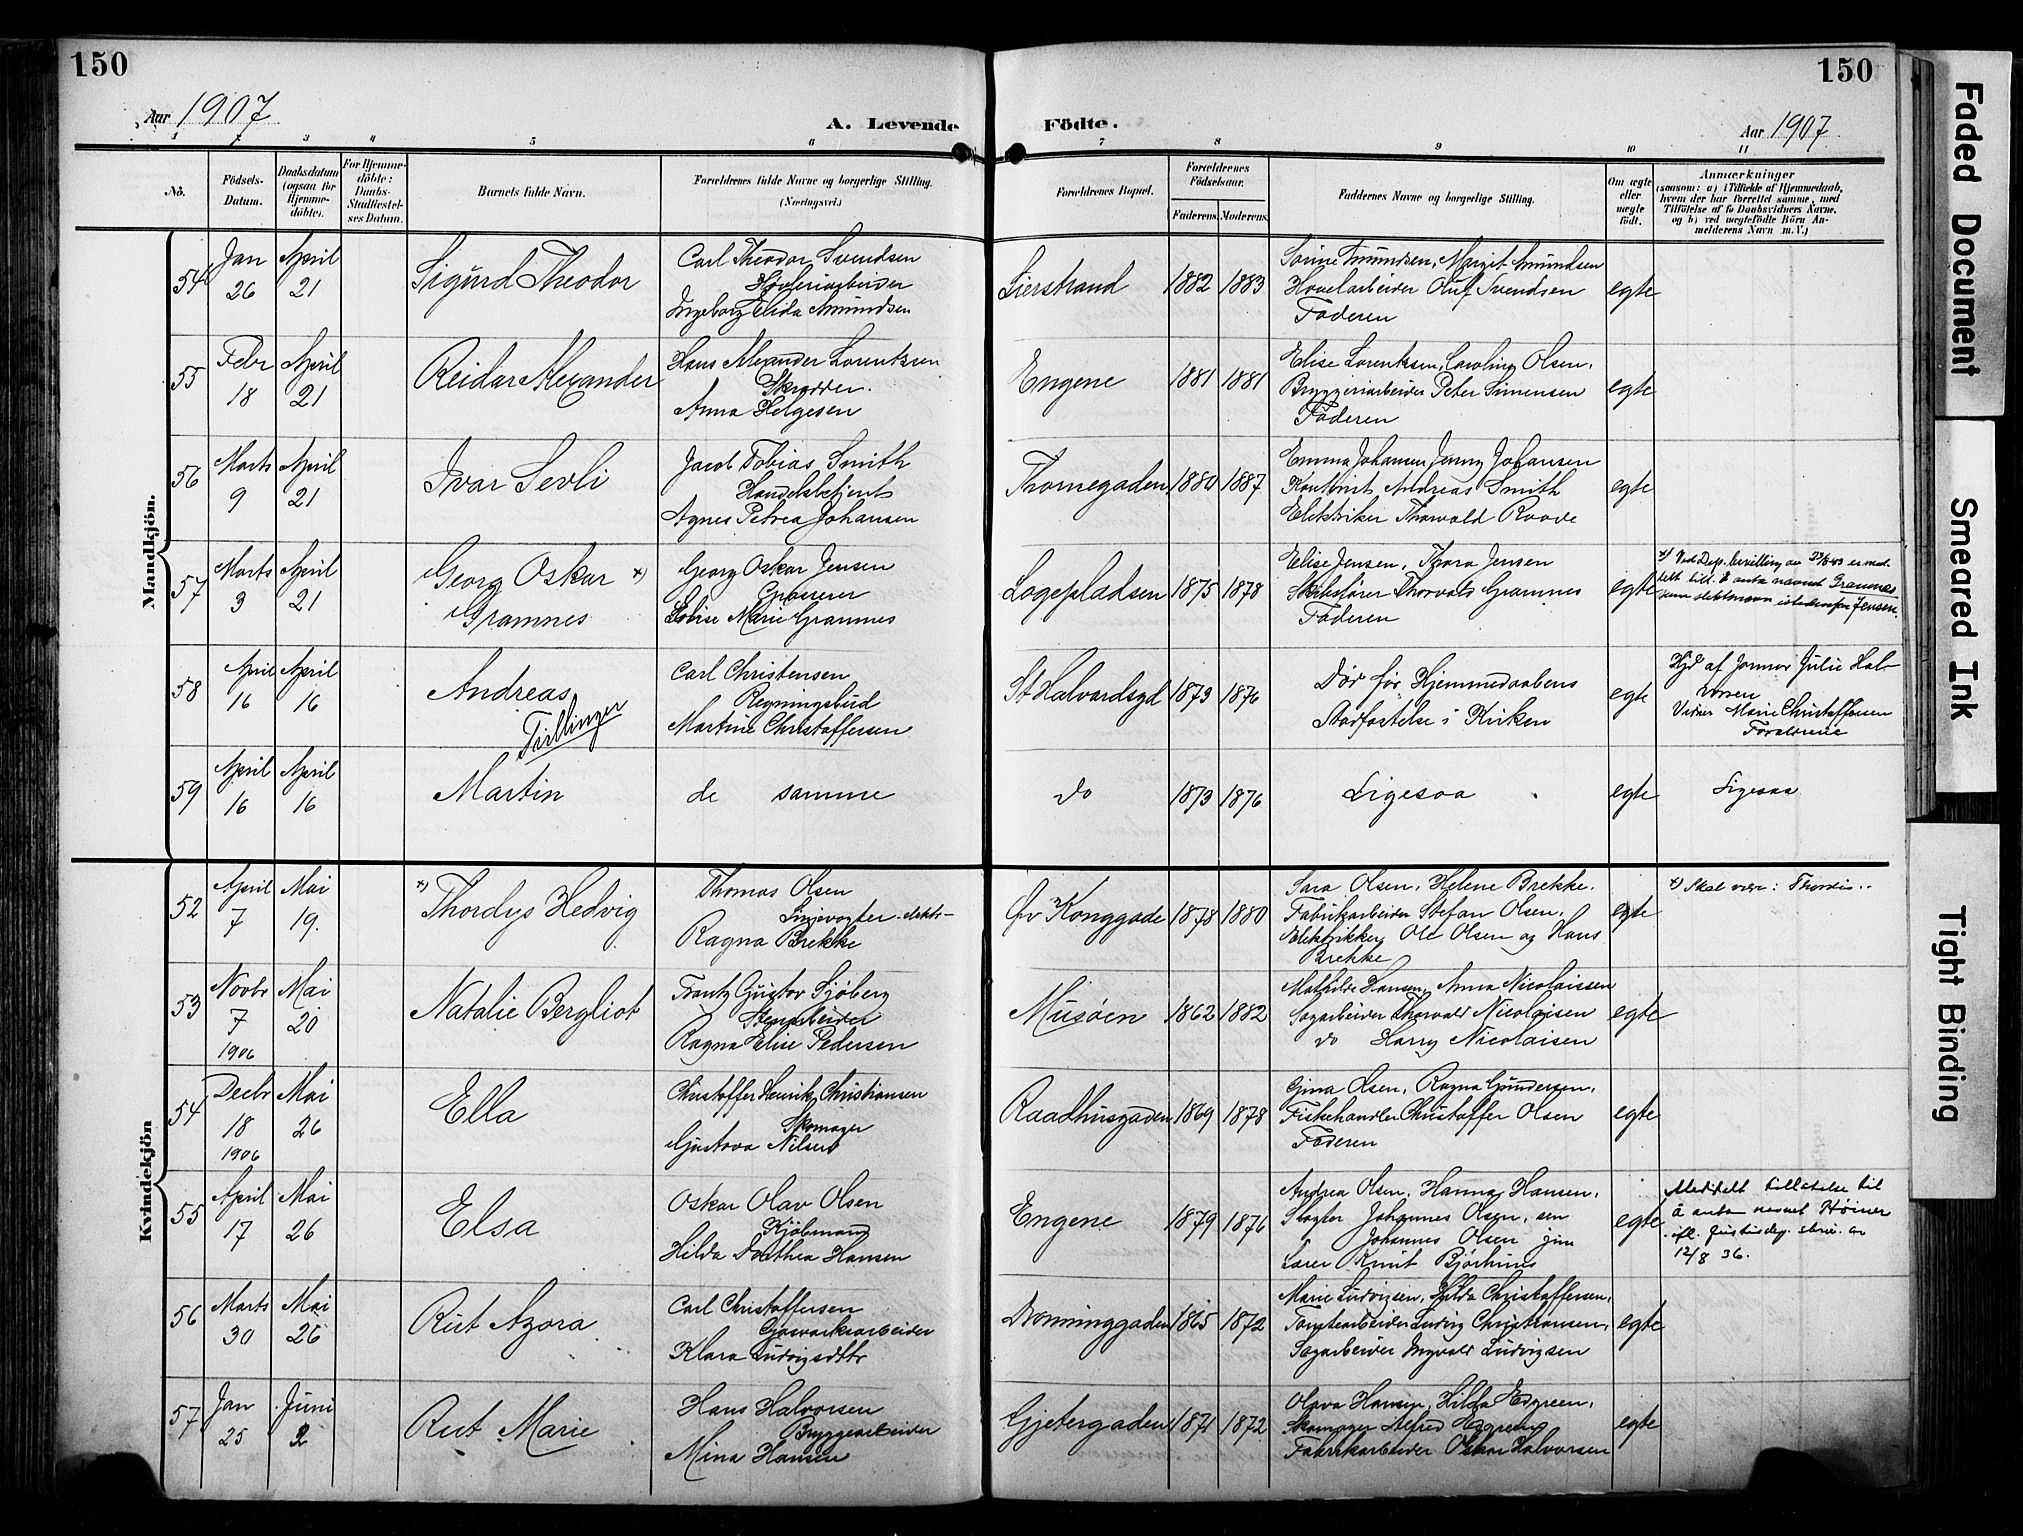 150
150
Aar 1907
A. Levende
Födte.
Aar 1907.
1 2 3 4 5 6 7 8 9 10 11
No.
Födsels-
Datum.
Daabsdatum
(ogsaa för
Hjemme-
döbte).
For Hjemme-
döbte:
Daabs-
Stadfæstel-
ses Datum.
Barnets fulde Navn.
Forældrenes fulde Navne og borgerlige Stilling.
(Næringsvei.)
Forældrenes Bopæl.
Forældrenes
Födselsaar.
Faderens.
Moderens.
Faddernes Navne og borgerlige Stilling.
Om ægte
eller
uægte
født.
Anmærkninger
(saasom: a) i Tilfælde af Hjemmedaab,
hvem der har forrettet samme, med
Tilföielse af to Daabsvidners Navne,
og b) ved uægtefödte Börn An-
melderens Navn m. V.)
Mandkjön.
54
Jan
26
April
21
Sigurd Theodor
Carl Theodor Svendsen
Høvleriarbeider
Ingeborg Elida Amundsen
Lierstrand
1882
1883
Amundsen, Margit Amundsen
Høvelarbeider Oluf Svendsen
Faderen
egte
55
Febr
18
April
21
Reidar Alexander
Hans Alexander Lorentzen
Skrædder.
Anna Helgesen
Engene
1881
1881
Elise Lorentzen, Caroline Olsen.
Bryggeriarbeider Peter Simensen
Faderen
egte
56
Marts
9
April
21
Ivar Sevli
Jacob Tobias Smith
Handelsbetjent
Agnes Petrea Johansen
Thornegaden
1880
1887
Emma Johansen Jenny Johansen
Kontorist Andreas Smith
Elektriker Thorvald Raade
egte
57
Marts
3
April
21
Georg Oskar x)
Gramnes
Georg Oskar Jensen
Graverer
Lovise Marie Gramnes
Logepladsen
1875
1878
Elise Jensen, Thora Jensen
Skibsfører Thorvald Gramnes
Faderen
egte
x) Ved Dep. bevilling av
delt till. å anta navnet Gramnes
som slektsnavn istedenfor Jensen.
58
April
16
April
16
Andreas
Tvillinger
Carl Christensen
Regningsbud
Martine Christoffersen
St Halvardsgd
1873
1876
Dør før Hjemmedaabens
Stadfæstelse i Kirken
egte
Hjd af Jormor Julie Hal-
vorsen
Vidner Marie Christoffersen
Forældrene
59
April
16
April
16
Martin
de samme
do
1873
1876
Ligesaa
egte
Ligesaa
Kvindekjön
52
April
7
Mai
19.
x) Thordys Hedvig
Thomas Olsen
Linjevogter
Ragna Brekke
Øv Konggade
1878
1880
Sara Olsen, Helene Brekke.
Fabrikarbeider Stefan Olsen,
Elektrikker Ole Olsen og Hans
Brekke
egte
x) Skal være: Thordis
53
Novbr
7
1906
Mai
20
Natalie Bergliot
Frantz Gustav Sjöberg
Stenarbeider
Ragna Elise Pedersen
Musöen
1862
1882
Mathilde Hansen, Anna Nicolaissen
Sagarbeider Thorvald Nicolaisen
do Harry Nicolaisen
egte
54
Decbr
18
1906
Mai
26
Ella
Christoffer Henrik Christiansen
Skomager
Gustava Nilsen
Raadhusgaden
1869
1878
Gina Olsen, Ragna Gundersen,
Fiskehandler Christoffer Olsen
Faderen
egte
55
April
17
Mai
26
Elsa
Oskar Olav Olsen
Kjöbmand
Hilda Dorthea Hansen
Engene
1879
1876
Andrea Olsen, Hanna Hansen.
Slagter Johannes Olsen, sen
Johannes Olsen jun
Lærer Knut Bjørhus
egte
Meddelt tillatelse til
å anta navnet Höiner
ifl. Justisdep. skriv. av
12/8 36.
56
Marts
30
Mai
26
Rut Azora
Carl Christoffersen
Gasværksarbeider
Klara Ludvigsdttr
Dronninggaden
1865
1872
Marie Ludvigsen, Hilda Christoffersen,
Tomtearbeider Ludvig Christiansen,
Sagarbeider Ingvald Ludvigsen
egte
57
Jan
25
Juni
2
Rut Marie
Hans Halvorsen
Bryggearbeider
Mina Hansen
Gjetergaden
1871
1872
Olava Hansen, Hilda Edgreen,
Skomager Alfred Edgreen,
Fabrikarbeider Oskar Halvorsen
egte
Faded Document
Smeared Ink
Tight Binding